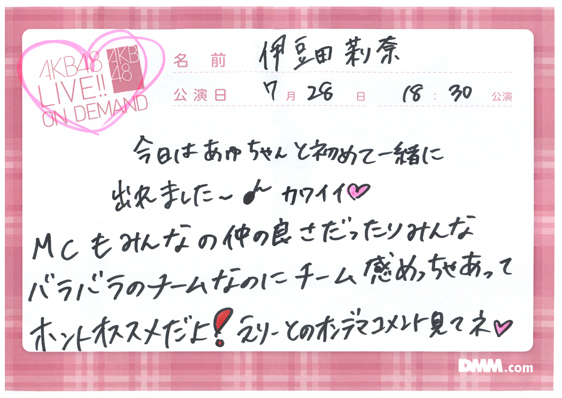 AKB48
LIVE!!
ON DEMAND
AKB
48
名前 伊豆田莉奈
公演日 7月28日 18:30公演
今日はあゆちゃんと初めて一緒に
出れました〜♪ カワイイ♡
MCもみんなの仲の良さだったりみんな
バラバラのチームなのにチーム感めっちゃあって
ホントオススメだよ! えりーとのオンデマコメント見てネ♡
DMM.com